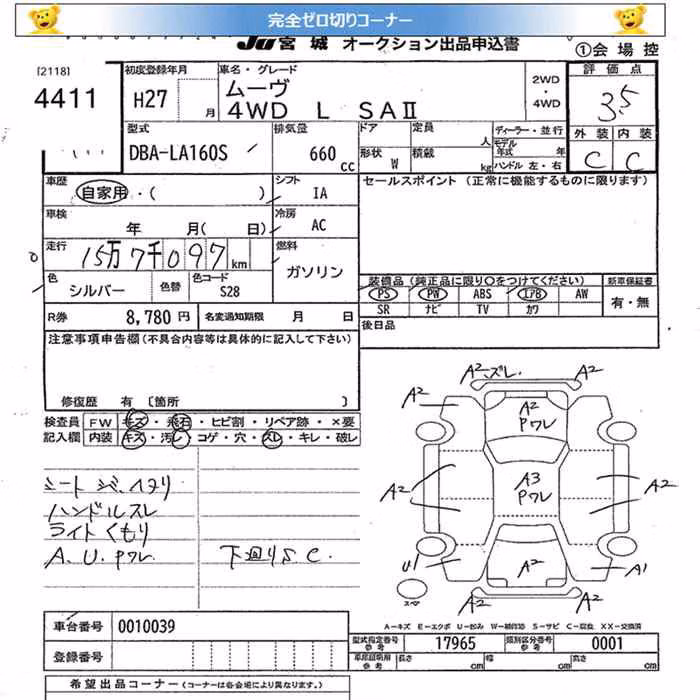 完全ゼロ切りコーナー
JU宮 城 オークション出品申込書 ①会 場 控
[2118]
4411
初度登録年月
H27 月
車名・グレード
ムーヴ
4WD L SAⅡ
2WD
・
4WD
評 価 点
3.5
外 装 内 装
C C
型式
DBA-LA160S
排気量
660 cc
ドア 定員 人
形状 W 積載 kg
ディーラー・並行
モデル年式 年
ハンドル 左・右
車歴
自家用・( )
シフト
IA
車検
年 月( 日)
冷房
AC
走行
15万7千097km
燃料
ガソリン
色
シルバー
色替
色コード
S28
R券 8,780 円
名変通知期限 月 日
セールスポイント (正常に機能するものに限ります)
装備品 (純正品に限り〇をつけてください)
PS PW ABS エアB AW
SR ナビ TV カワ
新車保証書
有・無
後日品
注意事項申告欄(不具合内容等は具体的に記入して下さい)
修復歴 有 〔箇所 〕
検査員 FW キズ・飛石・ヒビ割・リペア跡・×要
記入欄 内装 キズ・汚レ・コゲ・穴・スレ・キレ・破レ
ハンドルスレ
ライトくもり
A.U.Pワレ 下廻りS C.
A2 ズレ A2
A2 A2
A2
Pワレ
A3
Pワレ
A2 A2
U1 A2 A1
スペア
A2 A2
A-キズ E-エクボ U-凹み W-補修跡 S-サビ C-腐食 XX-交換済
車台番号 0010039
登録番号
型式指定番号 参考 17965
類別区分番号 参考 0001
車庫証明用 参考 長さ cm 幅 cm 高さ cm
希望出品コーナー (コーナーは各会場により異なります。)